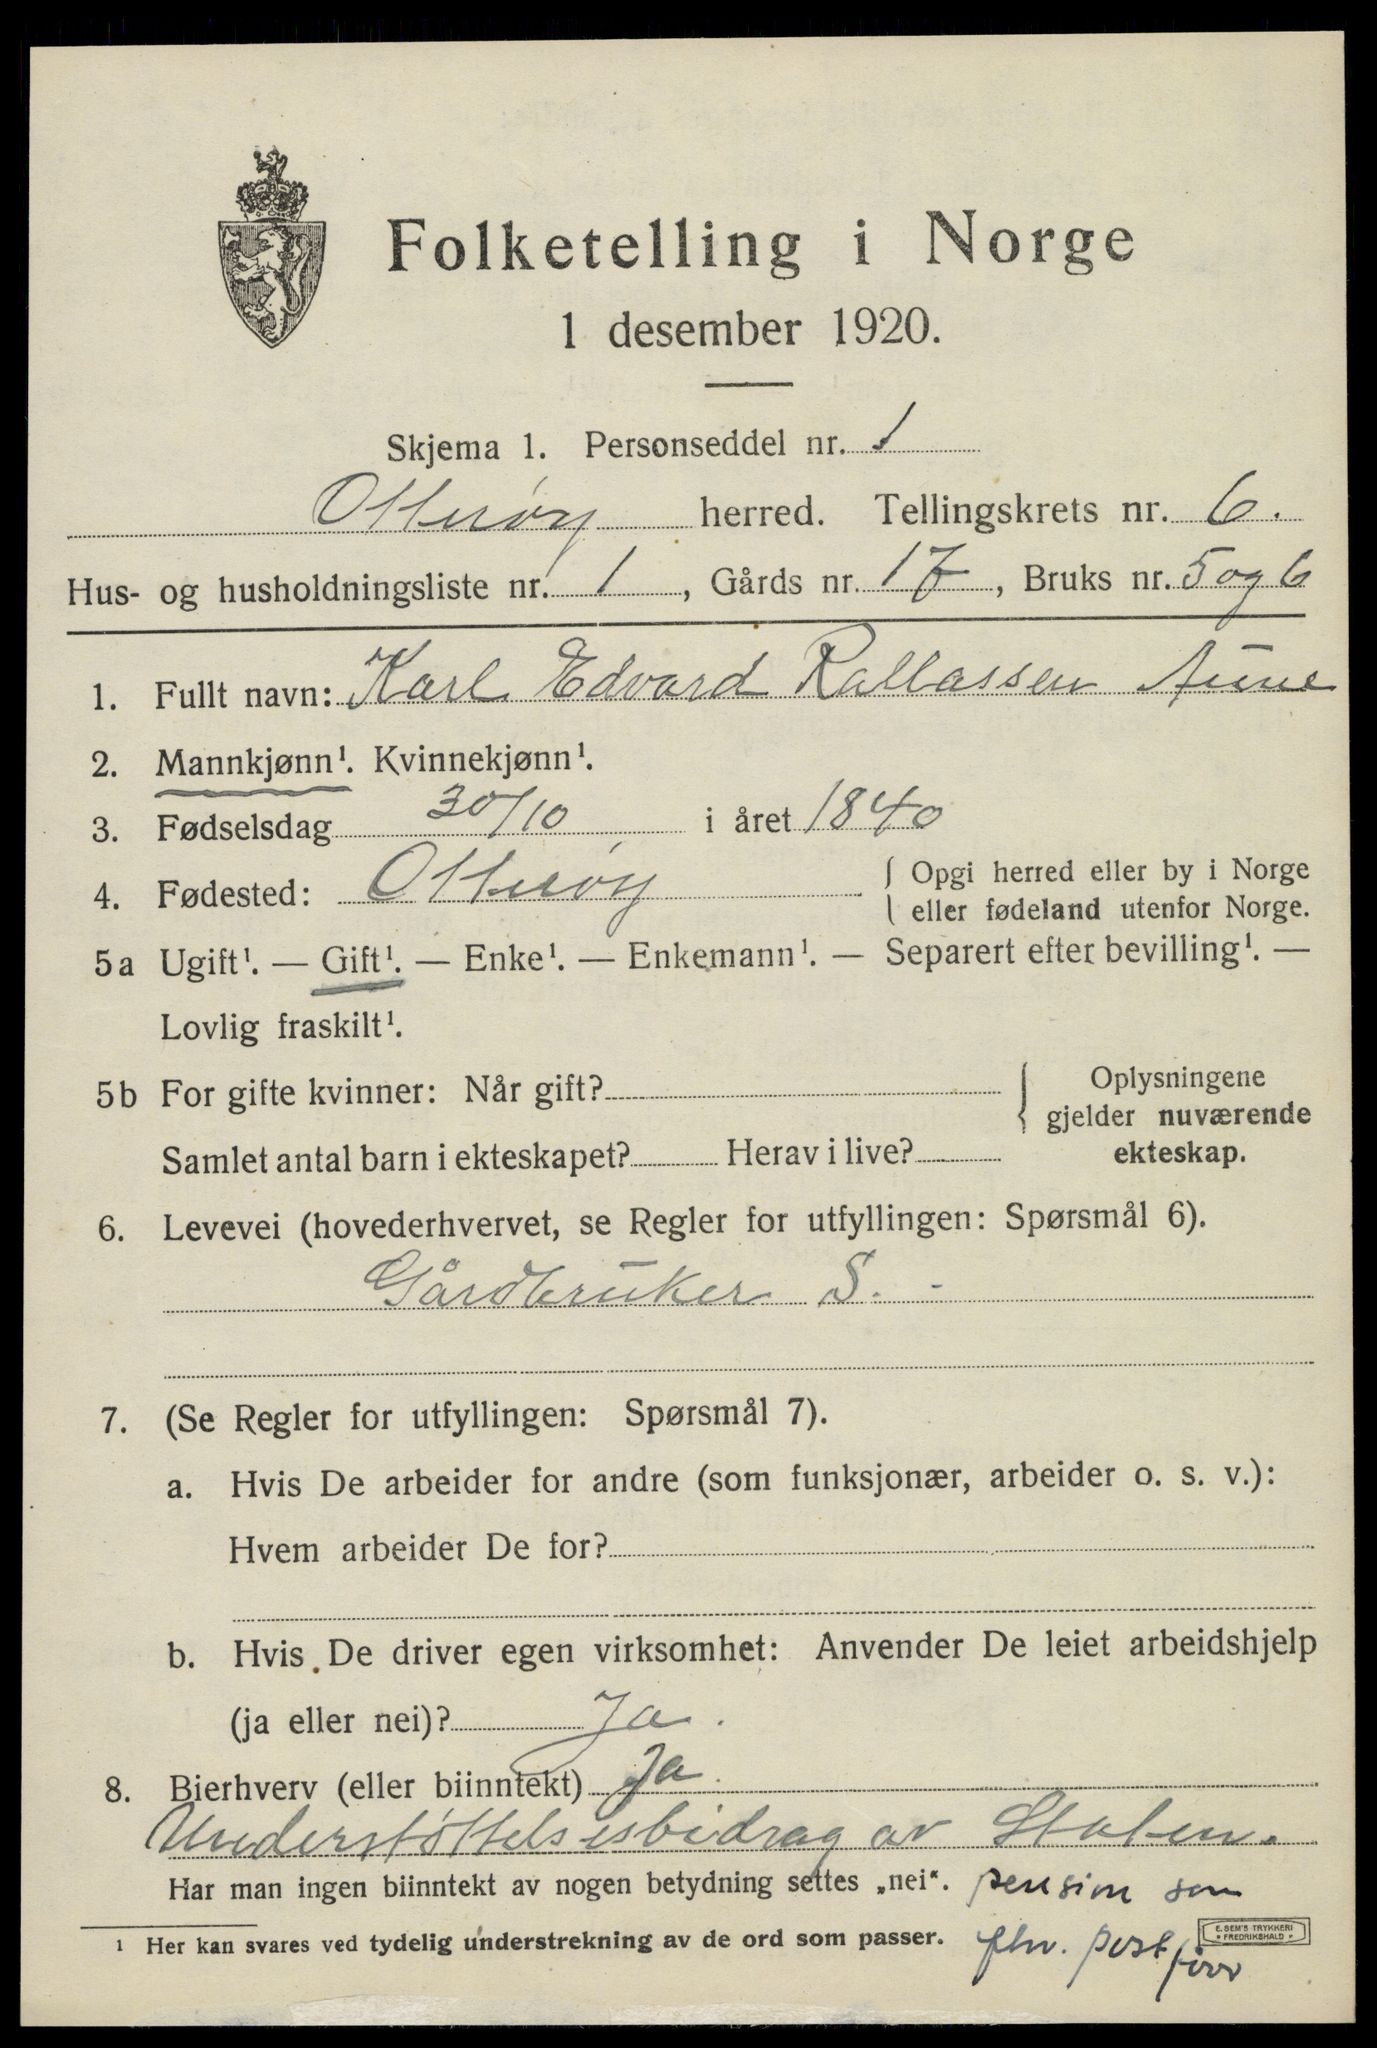 Folketelling i Norge
1 desember 1920.
Skjema 1. Personseddel nr. 1
Otterøy herred. Tellingskrets nr. 6.
Hus- og husholdningsliste nr. 1, Gårds nr. 17, Bruks nr. 5 og 6
1. Fullt navn: Karl Edvard Rallassen Aune
2. Mannkjønn¹. Kvinnekjønn¹.
3. Fødselsdag 30/10 i året 1840
4. Fødested: Otterøy { Opgi herred eller by i Norge
eller fødeland utenfor Norge.
5a Ugift¹. — Gift¹. — Enke¹. — Enkemann¹. — Separert efter bevilling¹. —
Lovlig fraskilt¹.
5b For gifte kvinner: Når gift? { Oplysningene
gjelder nuværende
Samlet antal barn i ekteskapet? Herav i live? ekteskap.
6. Levevei (hovederhvervet, se Regler for utfyllingen: Spørsmål 6).
Gårdbruker S. -
7. (Se Regler for utfyllingen: Spørsmål 7).
a. Hvis De arbeider for andre (som funksjonær, arbeider o. s. v.):
Hvem arbeider De for?
b. Hvis De driver egen virksomhet: Anvender De leiet arbeidshjelp
(ja eller nei)? Ja.
8. Bierhverv (eller biinntekt) Ja
Understøttelsesbidrag av Staten.
Har man ingen biinntekt av nogen betydning settes „nei“. pension som
¹ Her kan svares ved tydelig understrekning av de ord som passer. fhv. post
E. SEM'S TRYKKERI
FREDRIKSHALD